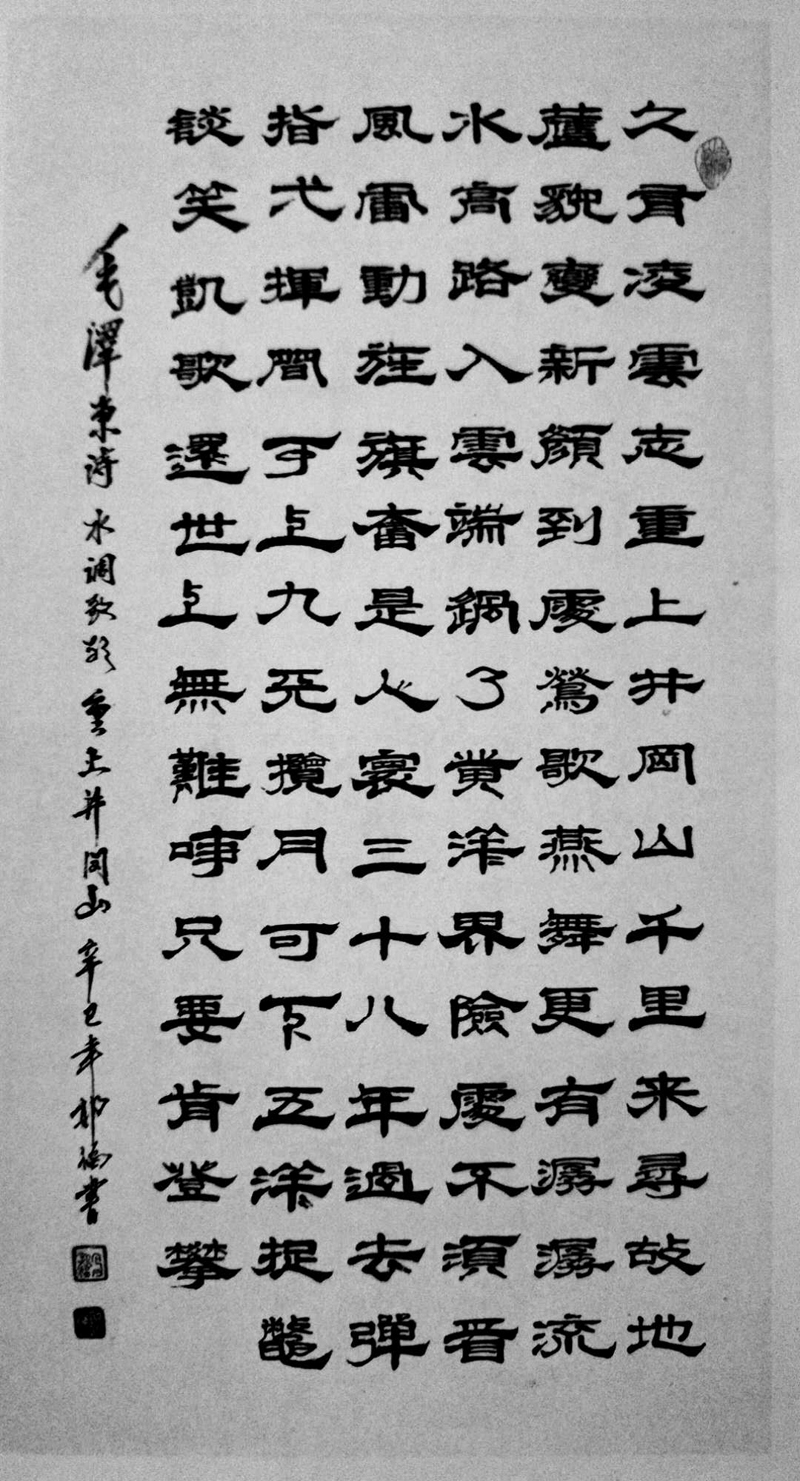 久有凌雲志重上井岡山千里来尋故地
舊貌變新顔到處鶯歌燕舞更有潺潺流
水高路入雲端過了黄洋界險處不須看
風雷動旌旗奮是人寰三十八年過去彈
指弌揮間可上九天攬月可下五洋捉鱉
談笑凱歌還世上無難事只要肯登攀
毛澤東詩 水调歌頭 重上井岡山 辛巳年 書